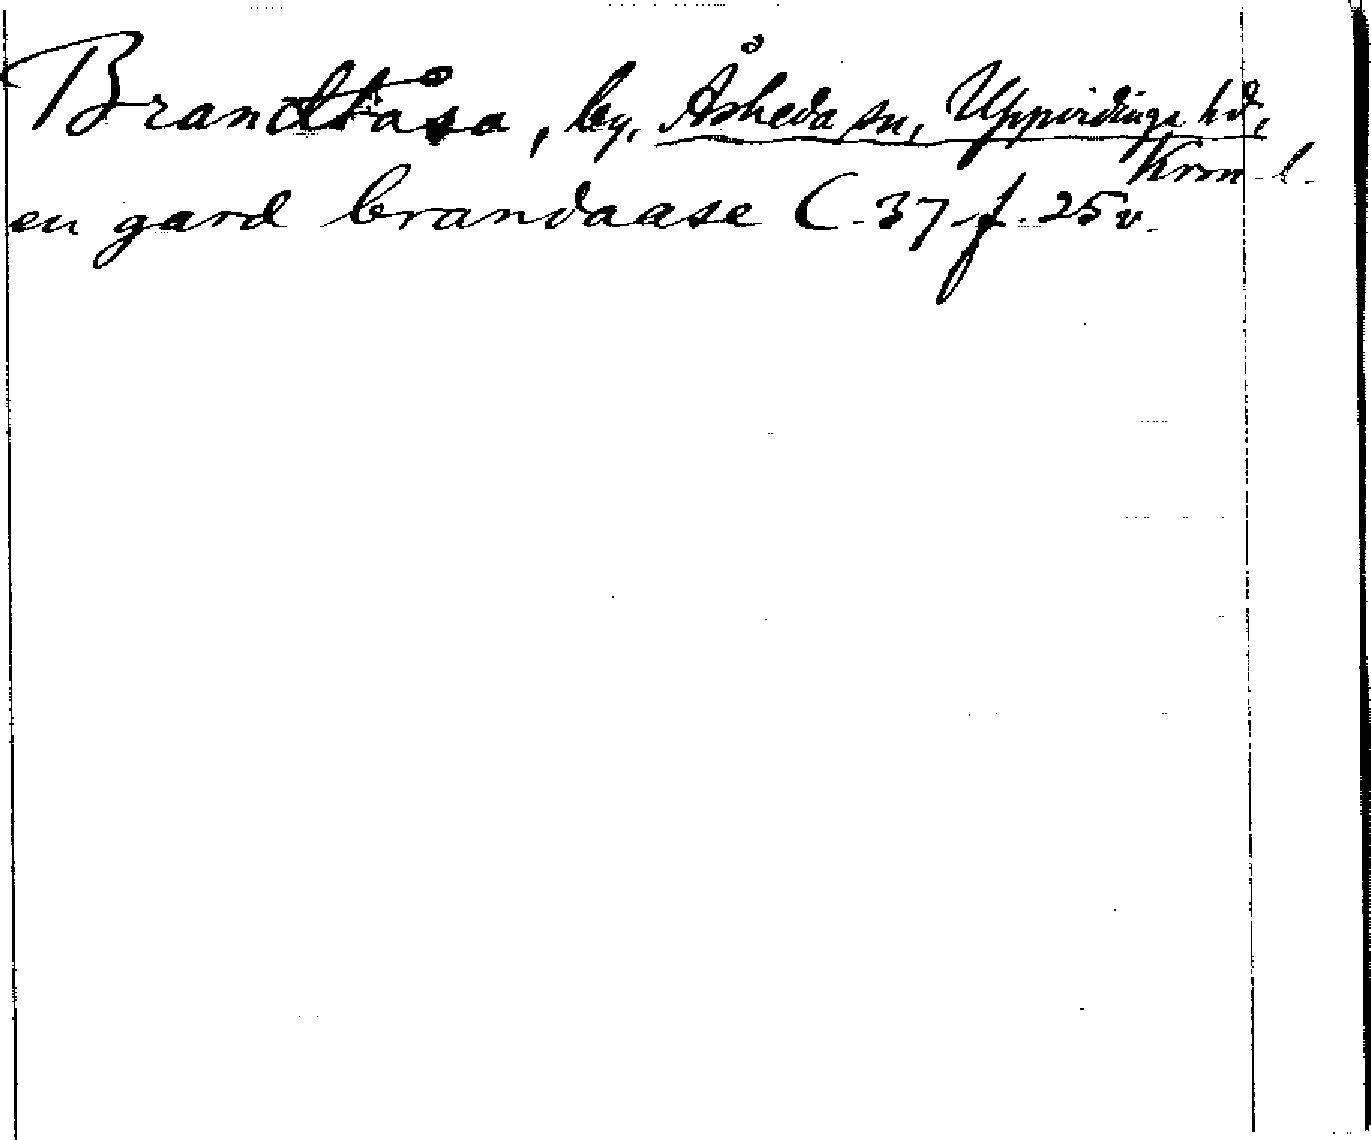 Brandtåsa, by, Åsheda sn, Uppvidinge hd,
Kron. l.
en gard brandaase C. 37 f. 25 v.